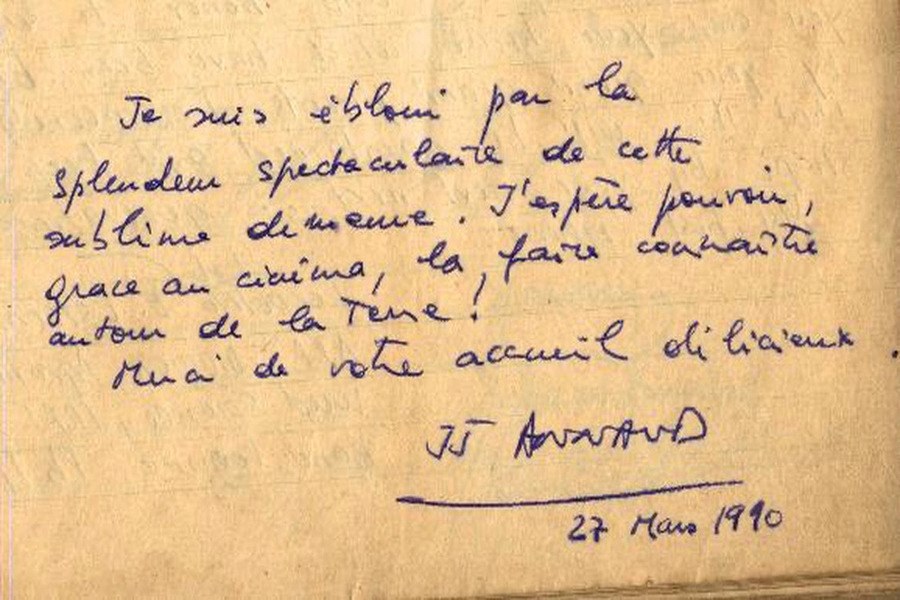 Je suis ébloui par la
splendeur spectaculaire de cette
sublime demeure. J'espère pouvoir,
grace au cinéma, la faire connaître
autour de la Terre !
Merci de votre accueil délicieux.
JJ ANNAUD
27 Mars 1990